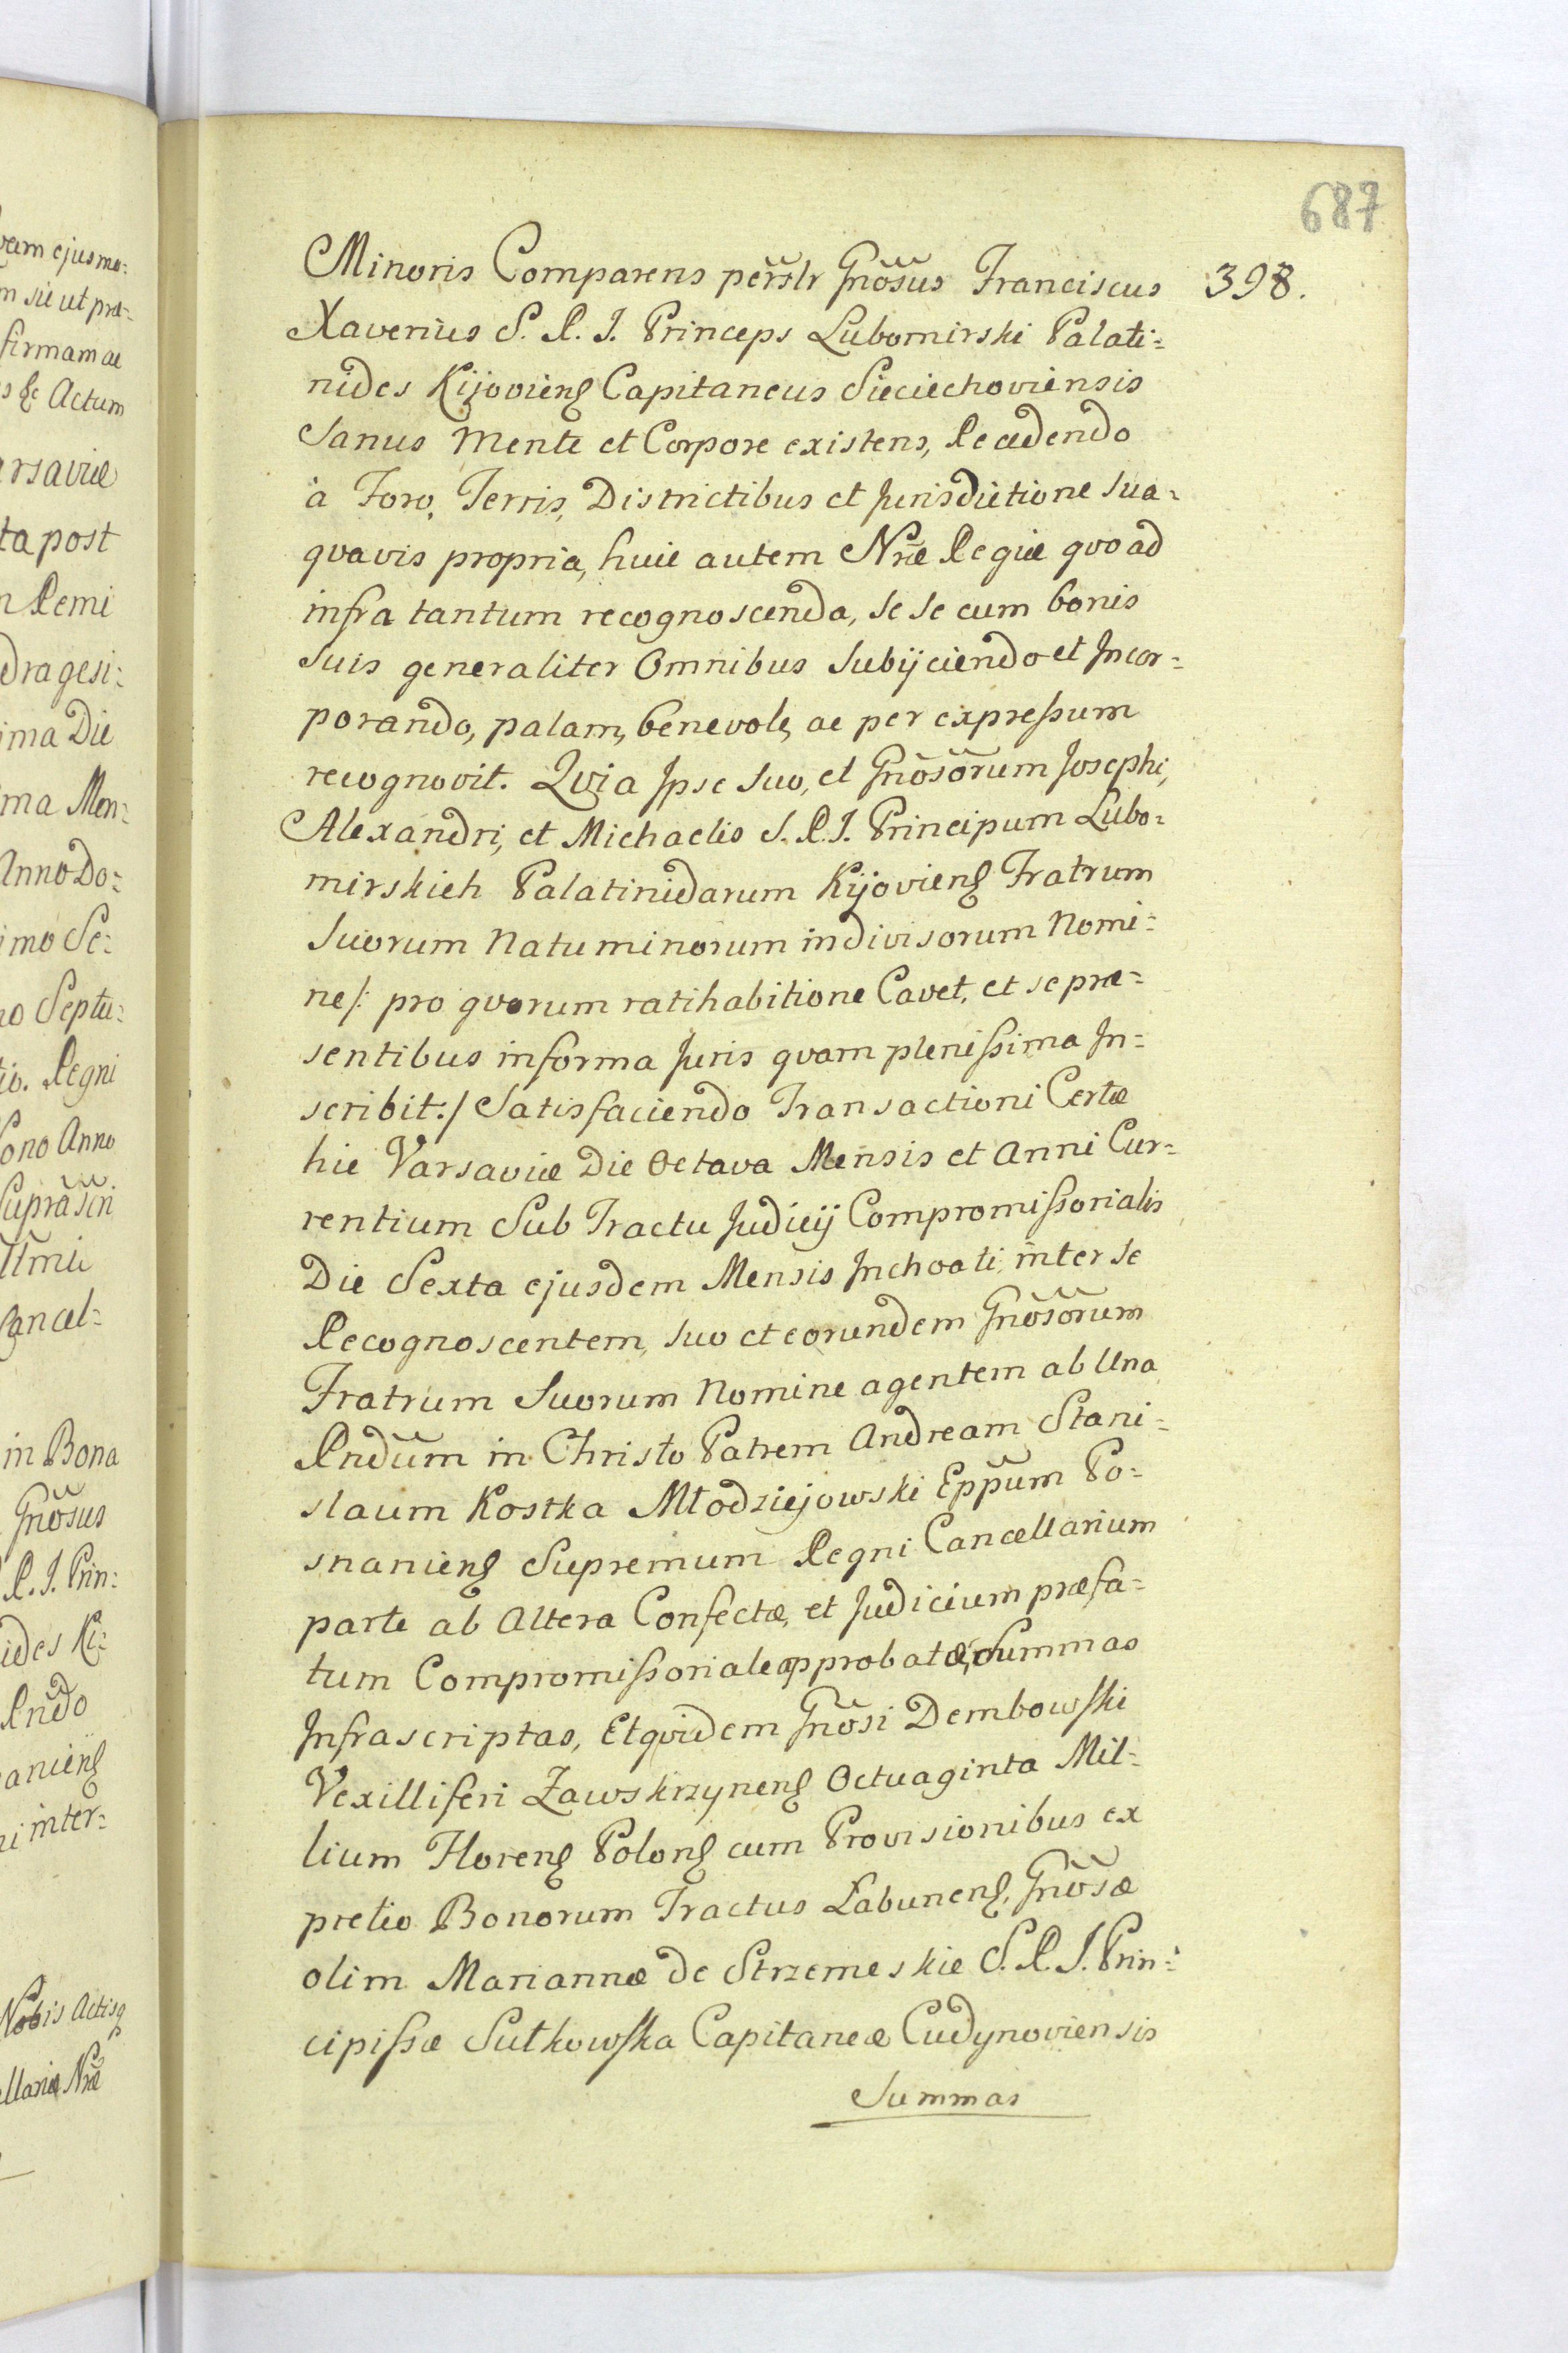 687
398.
Minoris Comparens persltr Gnosus Franciscus
Xaverius S. R. I. Princeps Lubomirski Palati=
nides Kijoviens Capitaneus Sieciechoviensis
Sanus Mente et Corpore existens, Recedendo
à Foro, Terris, Districtibus et Jurisdictione sua=
qvavis propria, huic autem Nrae Regiae qvo ad
infra tantum recognoscenda, se se cum bonis
suis generaliter Omnibus Subijciendo et Incor=
porando, palam, benevole, ac per expressum
recognovit. Qvia Ipse suo, et Gnosorum Josephi,
Alexandri, et Michaelis S. R. I. Principum Lubo=
mirskich Palatinidarum Kijoviens Fratrum
Suorum Natu minorum indivisorum Nomi=
ne /: pro qvorum ratihabitione Cavet, et se prae=
sentibus in forma Juris qvam plenissima In=
scribit :/ Satisfaciendo Transactioni Certae
hic Varsaviae Die Octava Mensis et Anni Cur=
rentium Sub Tractu Judicij Compromissorialis
Die Sexta ejusdem Mensis Inchoati, inter se
Recognoscentem, suo et eorundem Gnosorum
Fratrum Suorum Nomine agentem ab Una
Rndum in Christo Patrem Andream Stani=
slaum Kostka Młodziejowski Eppum Po=
snaniens Supremum Regni Cancellarium
parte ab Altera Confectae, et Judicium praefa=
tum Compromissoriale approbatae, Summas
Infrascriptas, Etqvidem Gnosi Dembowski
Vexilliferi Zawskrzynens Octuaginta Mil=
lium Florens Polons cum Provisionibus ex
pretio Bonorum Tractus Łabunens, Gnosae
olim Mariannae de Strzemeskie S. R. I. Prin=
cipissae Sułkowska Capitaneae Cudynoviensis
Summas
vam ejusmo=
m sic ut prae=
firmam ac
s &c Actum
arsaviae
ta post
n Remi
dragesi=
ima Die
ma Men=
Anno Do=
imo Se=
no Septu=
tio. Regni
ono Anno
Suprascri
Illmi
Cancel=
in Bona
Gnosus
R. I. Prin=
ides Ki=
Rndo
aniens
ni inter=
Nobis Actisq
ellariae Nrae